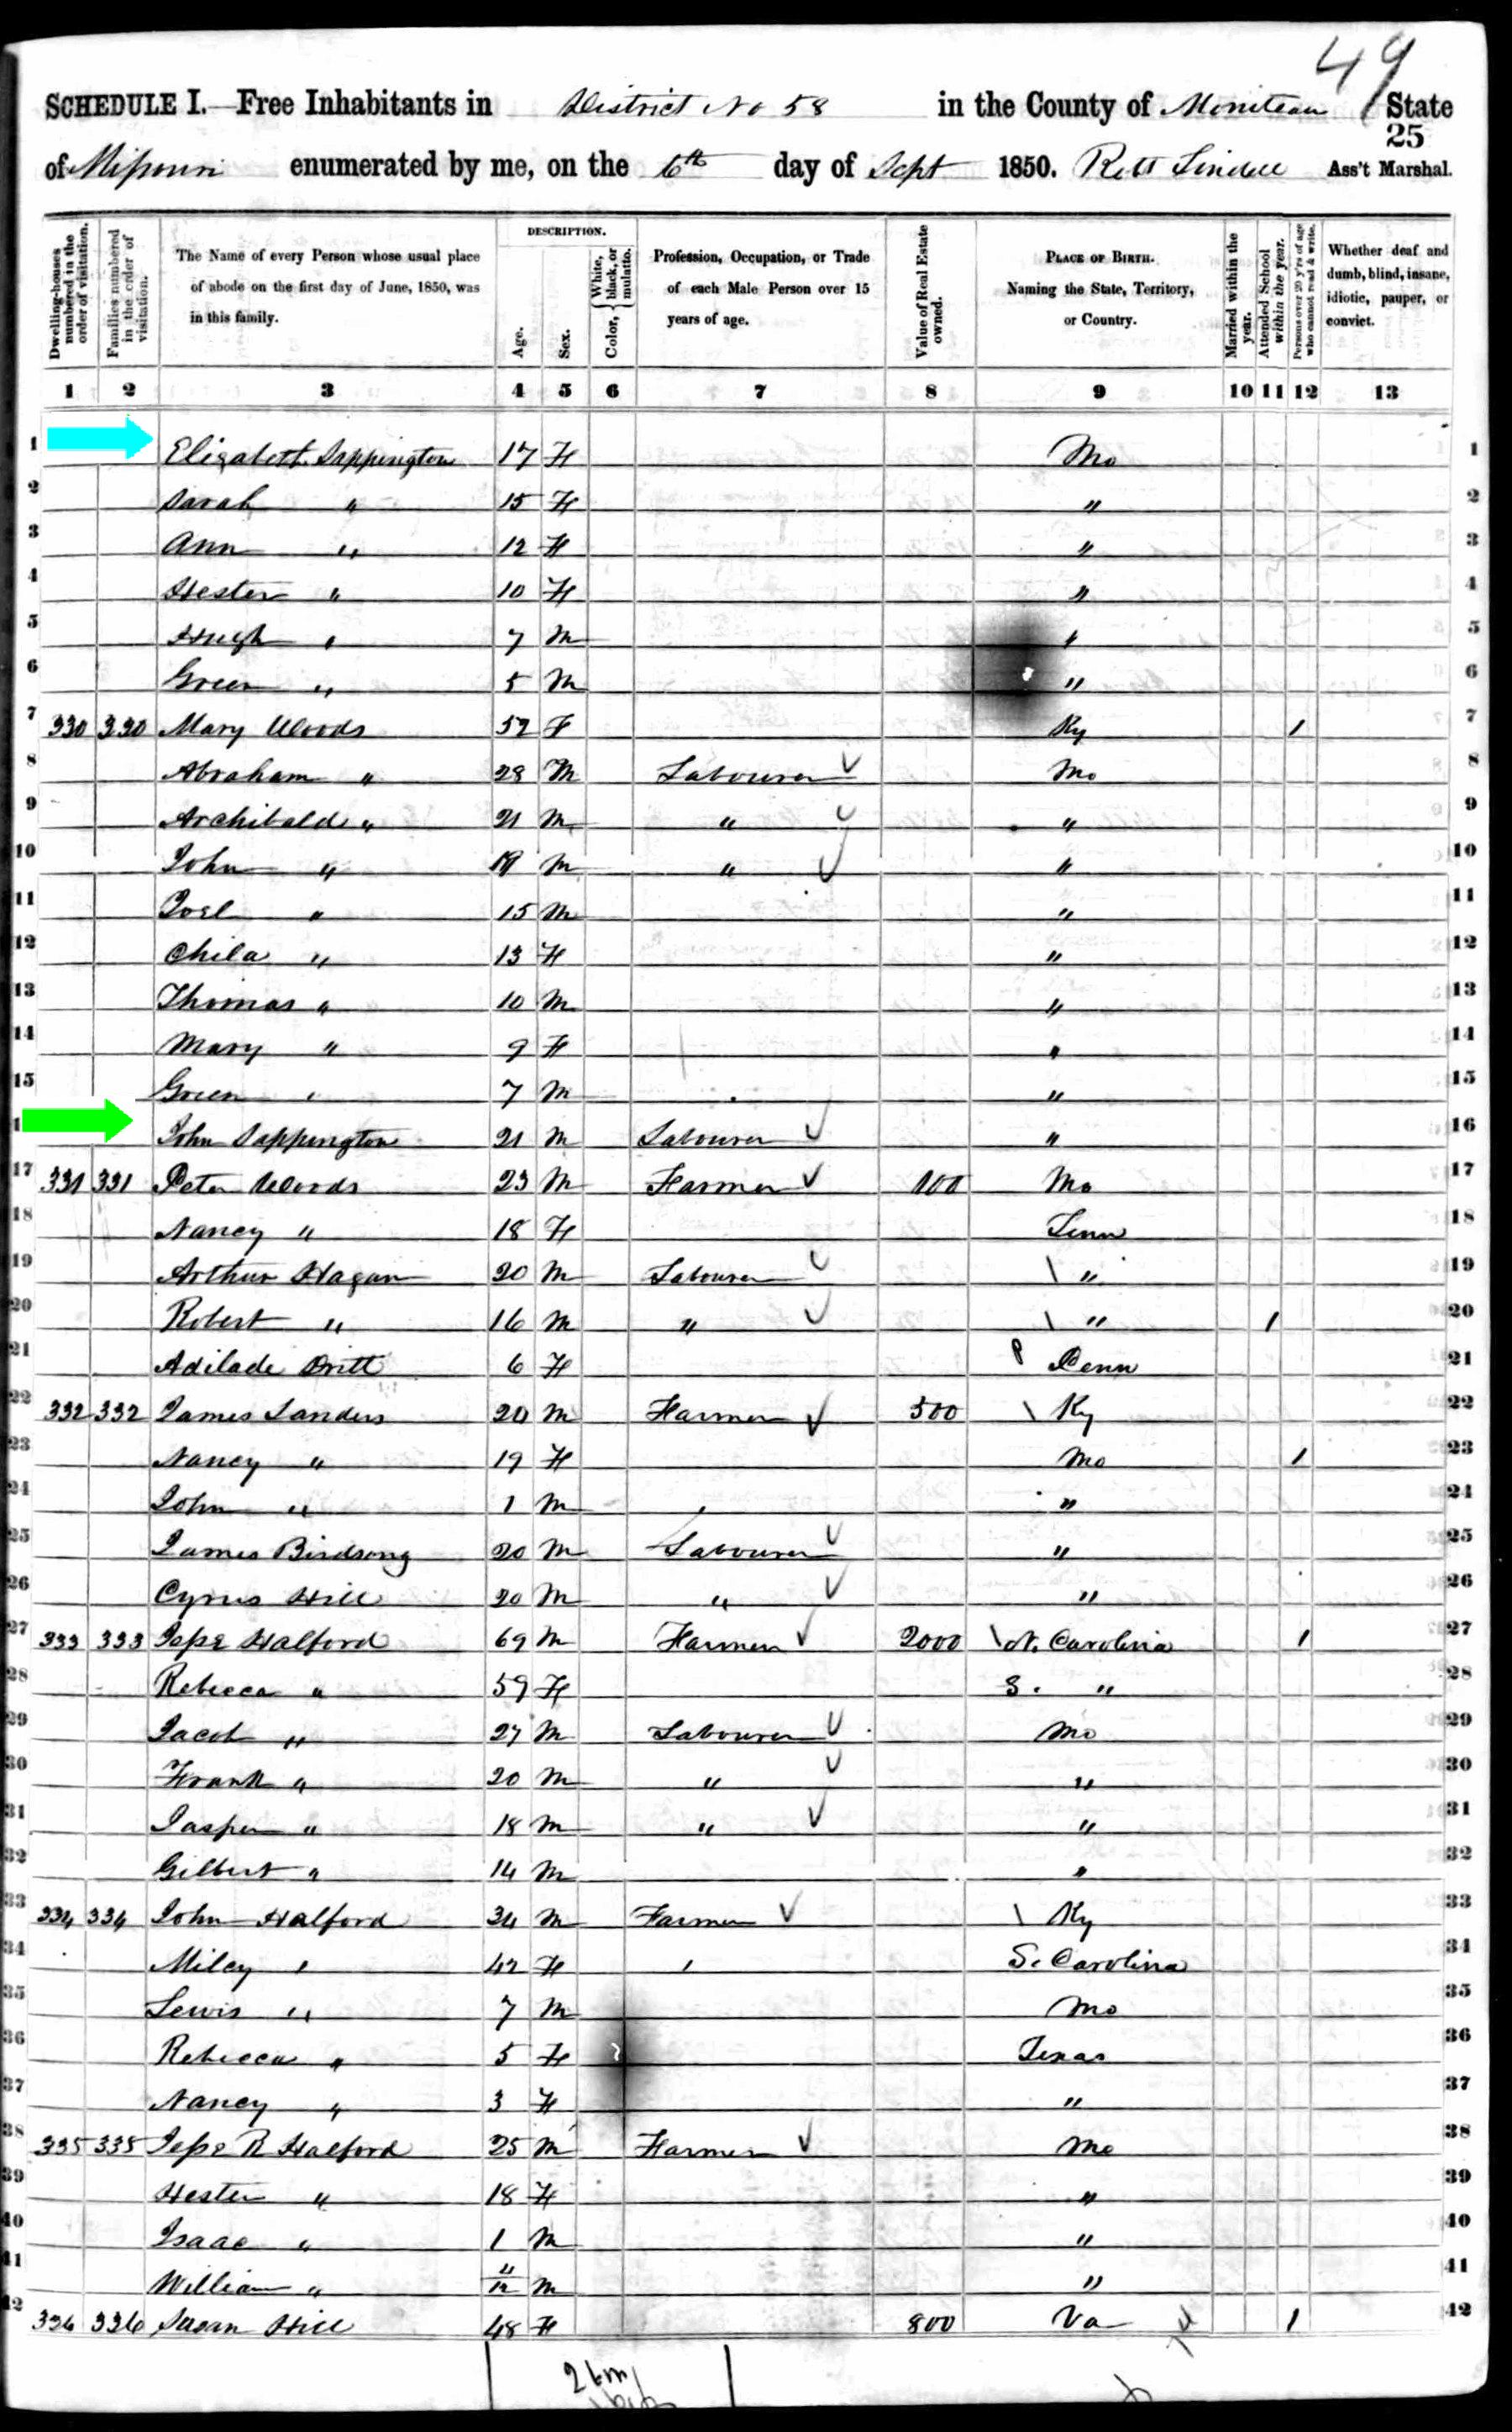 49
SCHEDULE I.—Free Inhabitants in District No 58 in the County of Moniteau State
25
of Missouri enumerated by me, on the 6th day of Sept 1850. Ass't Marshal.
Dwelling-houses numbered in the order of visitation.
Families numbered in the order of visitation.
The Name of every Person whose usual place of abode on the first day of June, 1850, was in this family.
DESCRIPTION.
Age.
Sex.
Color, White, black, or mulatto.
Profession, Occupation, or Trade of each Male Person over 15 years of age.
Value of Real Estate owned.
PLACE OF BIRTH. Naming the State, Territory, or Country.
Married within the year.
Attended School within the year.
Persons over 20 y'rs of age who cannot read & write.
Whether deaf and dumb, blind, insane, idiotic, pauper, or convict.
1 2 3 4 5 6 7 8 9 10 11 12 13
1 Elizabeth Sappington 17 F Mo 1
2 Sarah " 15 F " 2
3 Ann " 12 F " 3
4 Hester " 10 F " 4
5 Hugh " 7 M " 5
6 Green " 5 M " 6
7 330 330 Mary Woods 52 F Ky 1 7
8 Abraham " 28 M Labourer Mo 8
9 Archibald " 21 M " " 9
10 John " M " " 10
11 Joel " 15 M " 11
12 Chila " 13 F " 12
13 Thomas " 10 M " 13
14 Mary " 9 F " 14
15 Green " 7 M " 15
1 John Sappington 21 M Labourer " 16
17 331 331 Peter Woods 23 M Farmer 100 Mo 17
18 Nancy " 18 F Tenn 18
19 Arthur Hagan 20 M Labourer " 19
20 Robert " 16 M " " 1 20
21 Adilade Britt 6 F P Penn 21
22 332 332 James Landers 20 M Farmer 500 Ky 22
23 Nancy " 19 F Mo 1 23
24 John " 1 M " 24
25 James Birdsong 20 M Labourer " 25
26 Cyrus Hill 20 M " " 26
27 333 333 Jesse Halford 69 M Farmer 2000 N. Carolina 1 27
28 Rebecca " 59 F S. " 28
29 Jacob " 27 M Labourer Mo 29
30 Frank " 20 M " " 30
31 Jasper " 18 M " " 31
32 Gilbert " 14 M " 32
33 334 334 John Halford 34 M Farmer Ky 33
34 Miley " 42 F S. Carolina 34
35 Lewis " 7 M Mo 35
36 Rebecca " 5 F Texas 36
37 Nancy " 3 F " 37
38 335 335 Jesse R Halford 25 M Farmer Mo 38
39 Hester " 18 F " 39
40 Isaac " 1 M " 40
41 William " M " 41
12 336 336 Susan Hill 48 F 800 Va 1 42
26 m